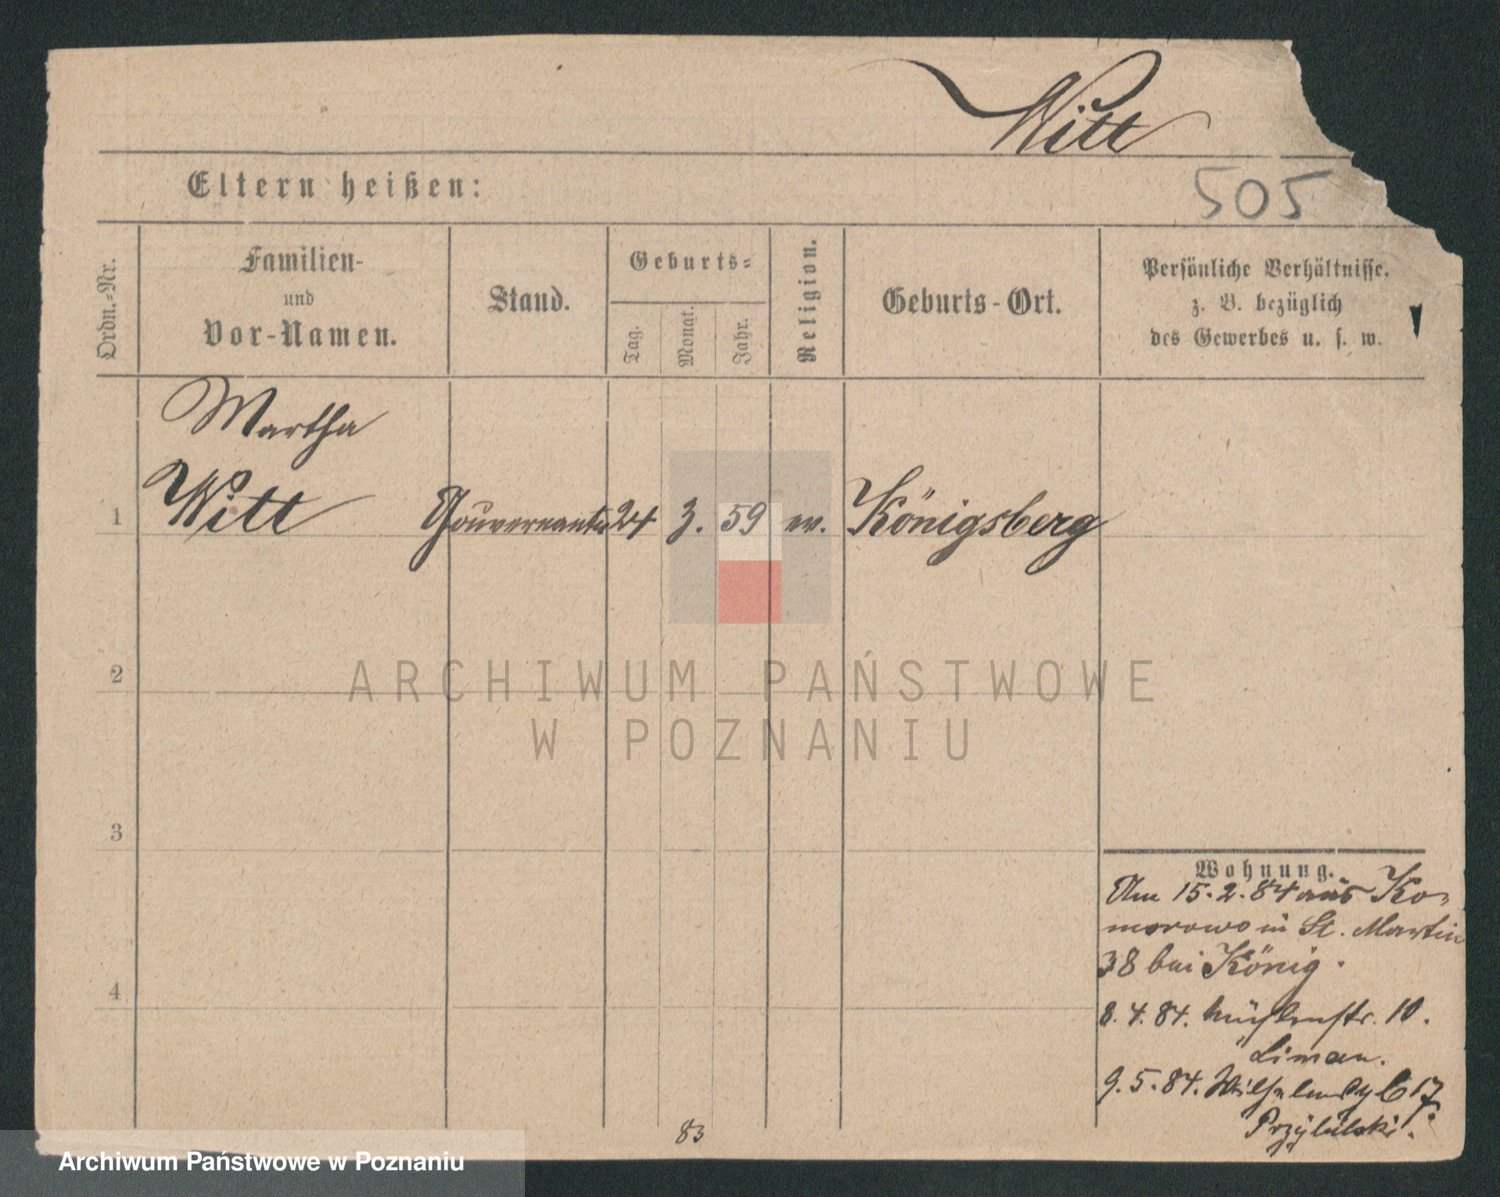 Witt
Eltern heißen:
505
Ordn.-Nr.
Familien-
und
Vor-Namen.
Stand.
Geburts-
Tag.
Monat.
Jahr.
Religion.
Geburts-Ort.
Persönliche Verhältnisse.
z. B. bezüglich
des Gewerbes u. s. w.
Martha
1 Witt Gouvernante 24 3. 59 ev. Königsberg
2
ARCHIWUM PAŃSTWOWE
W POZNANIU
3
Wohnung.
Am 15.2.84 aus Ko-
morowo in St. Martin
38 bei König.
4
8.4.84. Mühlenstr. 10.
Liman.
9.5.84. 17
Przybilski.
83
Archiwum Państwowe w Poznaniu